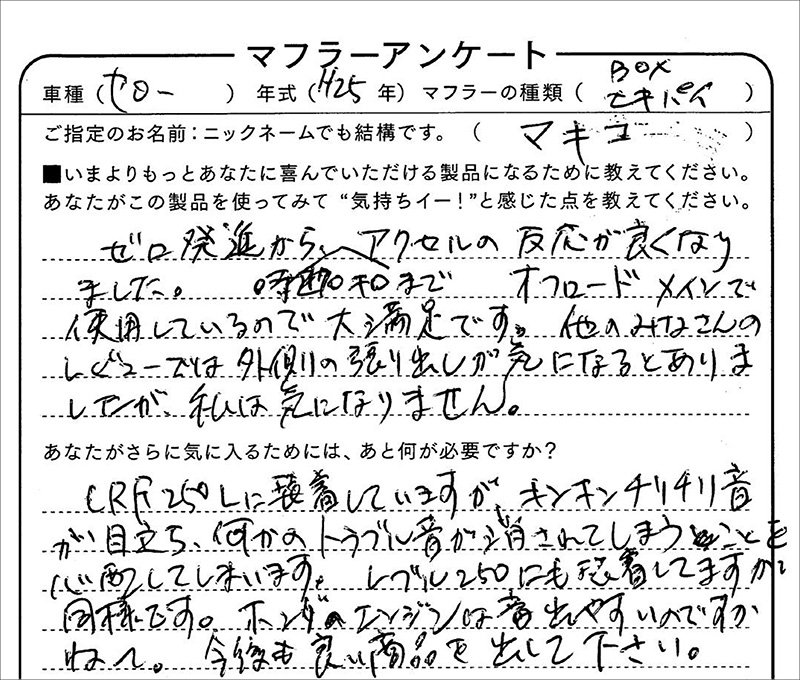 マフラーアンケート
車種（セロー）　年式（H25年）　マフラーの種類（BOXエキパイ）
ご指定のお名前：ニックネームでも結構です。（マキコ）
■いまよりもっとあなたに喜んでいただける製品になるために教えてください。
あなたがこの製品を使ってみて“気持ちイー！”と感じた点を教えてください。
ゼロ発進から、アクセルの反応が良くなり
ました。　まで　オフロードメインで
使用しているので大満足です。他のみなさんの
レビューでは外側の張り出しが気になるとありま
したが、私は気になりません。
あなたがさらに気に入るためには、あと何が必要ですか？
CRF250Lに装着していますが、キンキンチリチリ音
が目立ち、何かのトラブル音が消されてしまうことを
心配してしまいます。レブル250にも装着してますが
同様です。ホンダのエンジンは音出やすいのですか
ねへ。今後も良い商品を出して下さい。